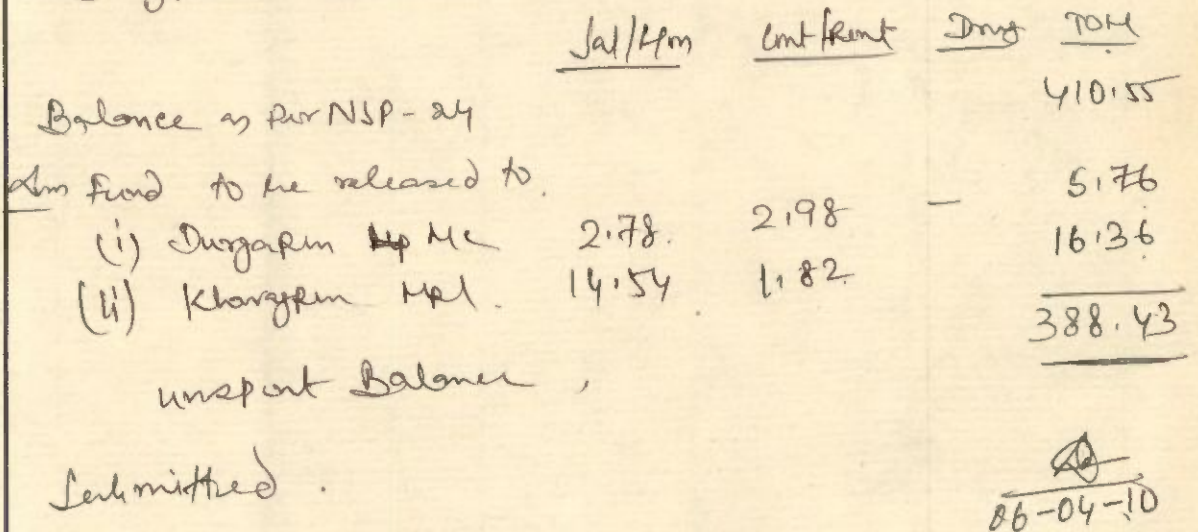 Sal/Hon Cont/Rent Drug Total
Balance as per NSP-24 410.55
Less Fund to be released to.
(i) Durgapur Mc 2.78. 2.98 — 5.76
(ii) Kharagpur Mpl. 14.54 1.82 16.36
388.43
unspent Balance,
Submitted.
06-04-10